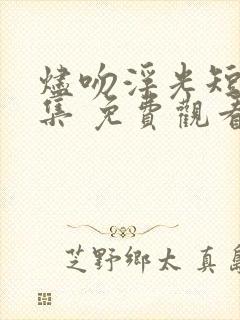 燼吻淫光短
集 免費觀看
芝野鄉太 真島